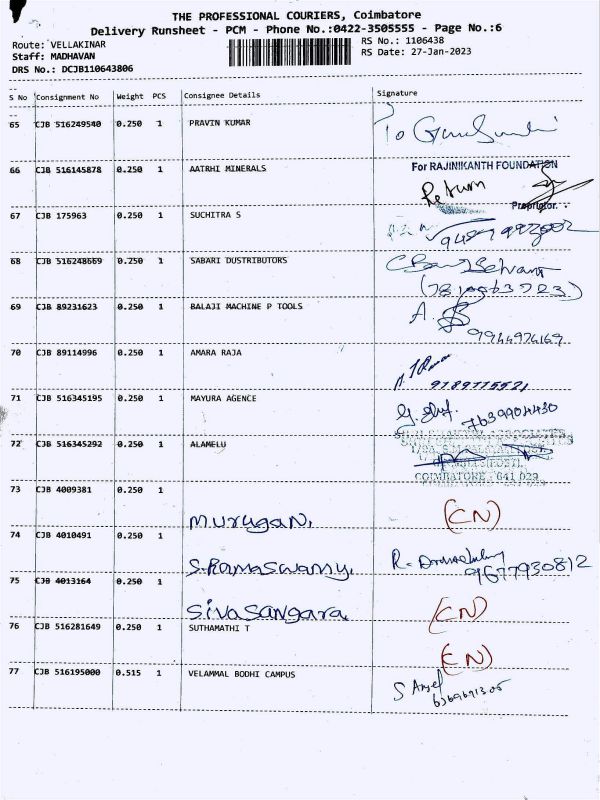 THE PROFESSIONAL COURIERS, Coimbatore
Delivery Runsheet - PCM - Phone No.:0422-3505555 - Page No.:6
Route: VELLAKINAR RS No.: 1106438
Staff: MADHAVAN RS Date: 27-Jan-2023
DRS No.: DCJB110643806
S No Consignment No Weight PCS Consignee Details Signature
65 CJB 516249540 0.250 1 PRAVIN KUMAR To
66 CJB 516145878 0.250 1 AATRHI MINERALS For RAJINIKANTH FOUNDATION
Return
Proprietor.
67 CJB 175963 0.250 1 SUCHITRA S
68 CJB 516248669 0.250 1 SABARI DUSTRIBUTORS
69 CJB 89231623 0.250 1 BALAJI MACHINE P TOOLS A.
9944974169
70 CJB 89114996 0.250 1 AMARA RAJA
9189775521
71 CJB 516345195 0.250 1 MAYURA AGENCE
7639904430
72 CJB 516345292 0.250 1 ALAMELU
COIMBATORE - 641 029
73 CJB 4009381 0.250 1
Murugan. (CN)
74 CJB 4010491 0.250 1
S.Ramaswamy. R. 9677930812
75 CJB 4013164 0.250 1
Sivasangara (CN)
76 CJB 516281649 0.250 1 SUTHAMATHI T
(CN)
77 CJB 516195000 0.515 1 VELAMMAL BODHI CAMPUS